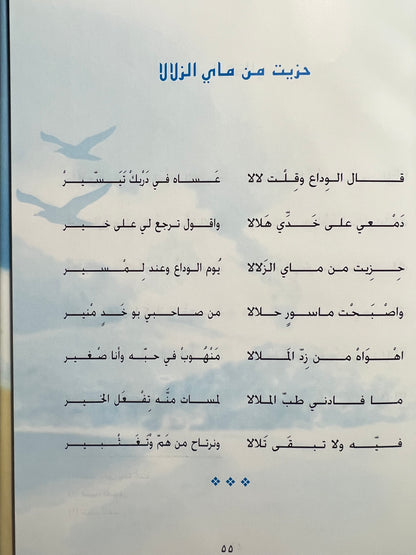 حزيت من ماي الزلالا
قال الوداع وقِلْت لالا عَساه في دَرْبِكْ تَيَسّيرْ
دَمْعي على خَدِّي هَلالا واقول ترجع لي على خير
حِزيت من ماي الزَلالا يُوم الوداع وعند لِمْسير
واصْبَحْت ماسورٍ حلالا من صاحبي بو خَدٍ مْنير
اهْواهْ من زِدّ المَلالا مَنْهُوبْ في حبّه وأنا صْغير
ما فادني طبّ الملالا لمسات منّه تِفْعَل الخير
فيّه ولا تبقى تَلالا ونرتاح من هَمّ وْتَغْبير
٥٥